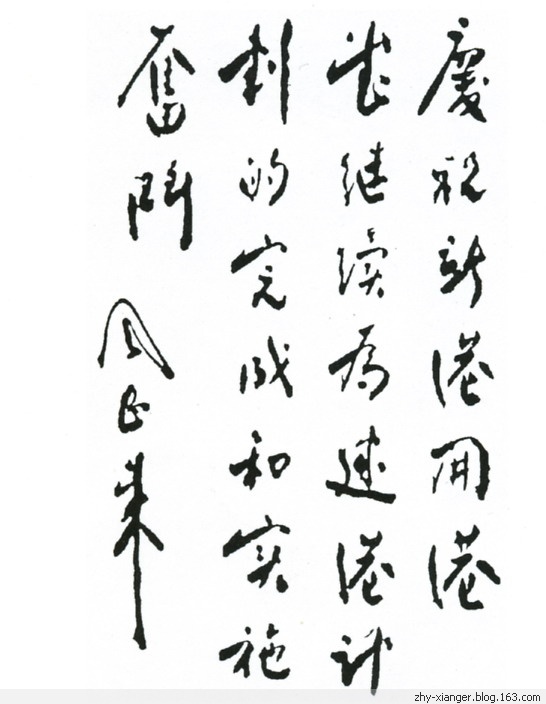 慶祝新港開港
並继續為建港計
劃的完成和实施
奮鬥
周恩来
zhy-xianger.blog.163.com